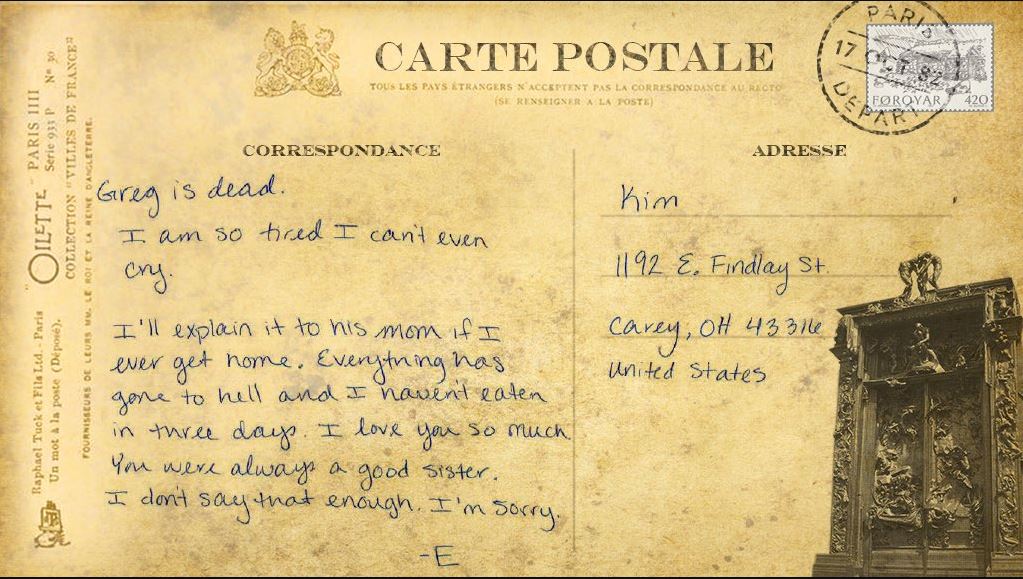 CARTE POSTALE
TOUS LES PAYS ÉTRANGERS N'ACCEPTENT PAS LA CORRESPONDANCE AU RECTO
(SE RENSEIGNER A LA POSTE)
PARIS
17 OCT 82
DEPART
FØROYAR 420
"OILETTE" PARIS IIII
Serie 933 P Nº 30
COLLECTION "VILLES DE FRANCE"
Raphael Tuck et Fils Ltd.. Paris
Un mot à la poste (Déposé).
FOURNISSEURS DE LEURS MM. LE ROI ET LA REINE D'ANGLETERRE.
CORRESPONDANCE
Greg is dead.
I am so tired I can't even
cry.
I'll explain it to his mom if I
ever get home. Everything has
gone to hell and I haven't eaten
in three days. I love you so much
You were always a good sister.
I don't say that enough. I'm sorry.
-E
ADRESSE
Kim
1192 E. Findlay St.
Carey, OH 43316
United States